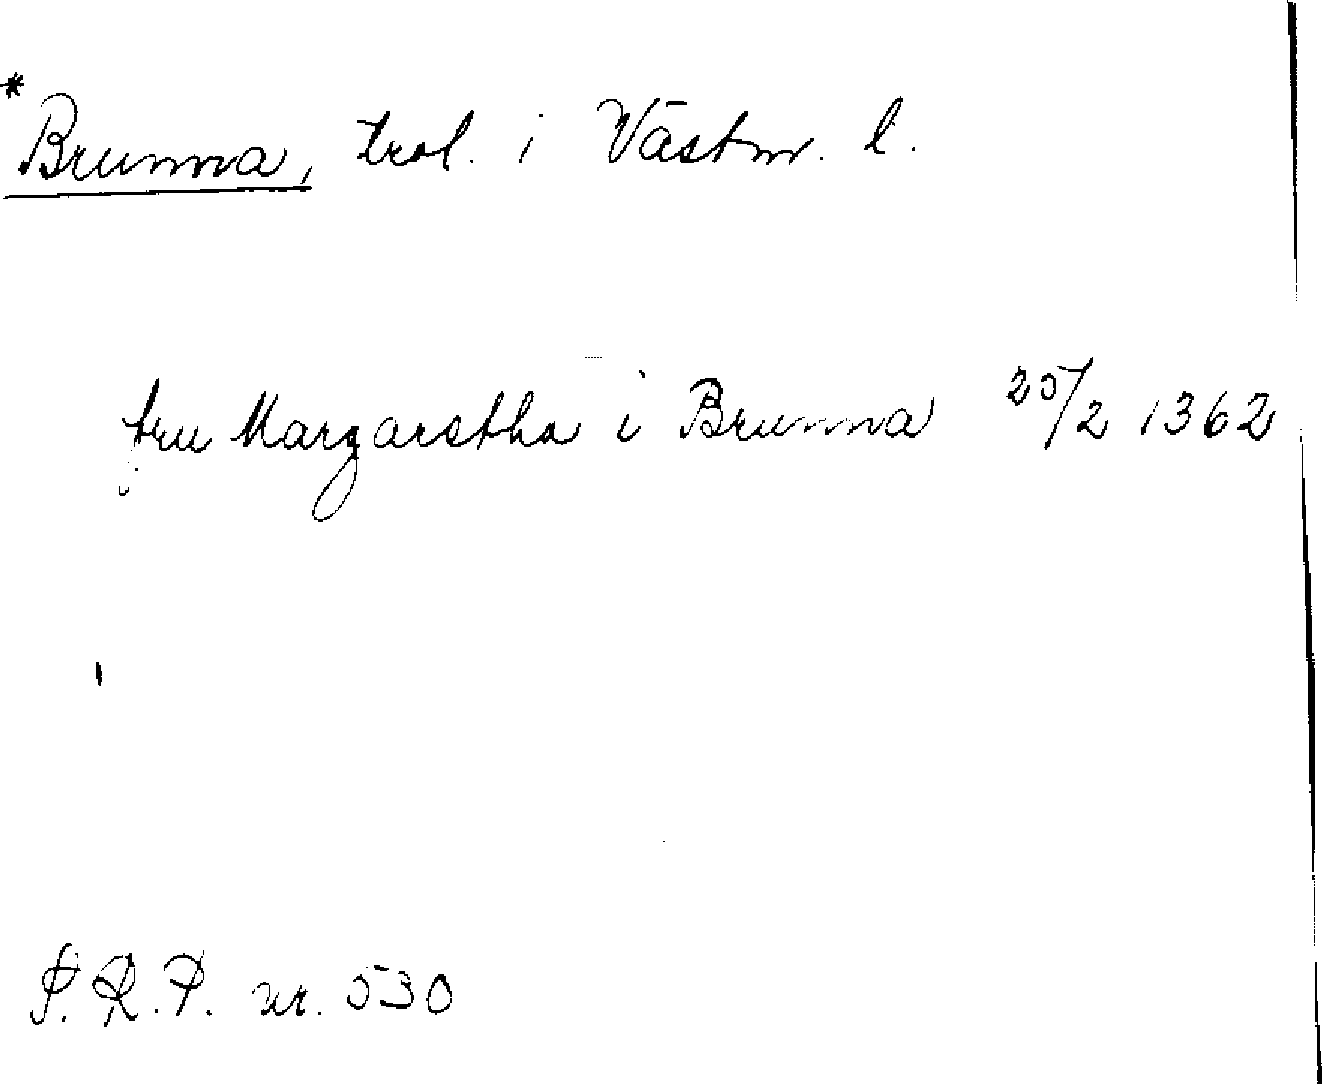 *Brunna, trol. i Västm. l.
fru Margaretha i Brunna 20/2 1362
S.R.P. nr. 530